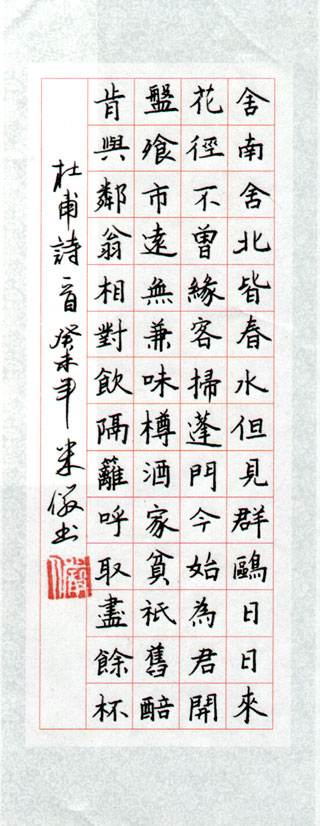 舍南舍北皆春水但見群鷗日日來
花徑不曾緣客掃蓬門今始為君開
盤飧市遠無兼味樽酒家貧祇舊醅
肯與鄰翁相對飲隔籬呼取盡餘杯
杜甫詩一首 癸未年 米书